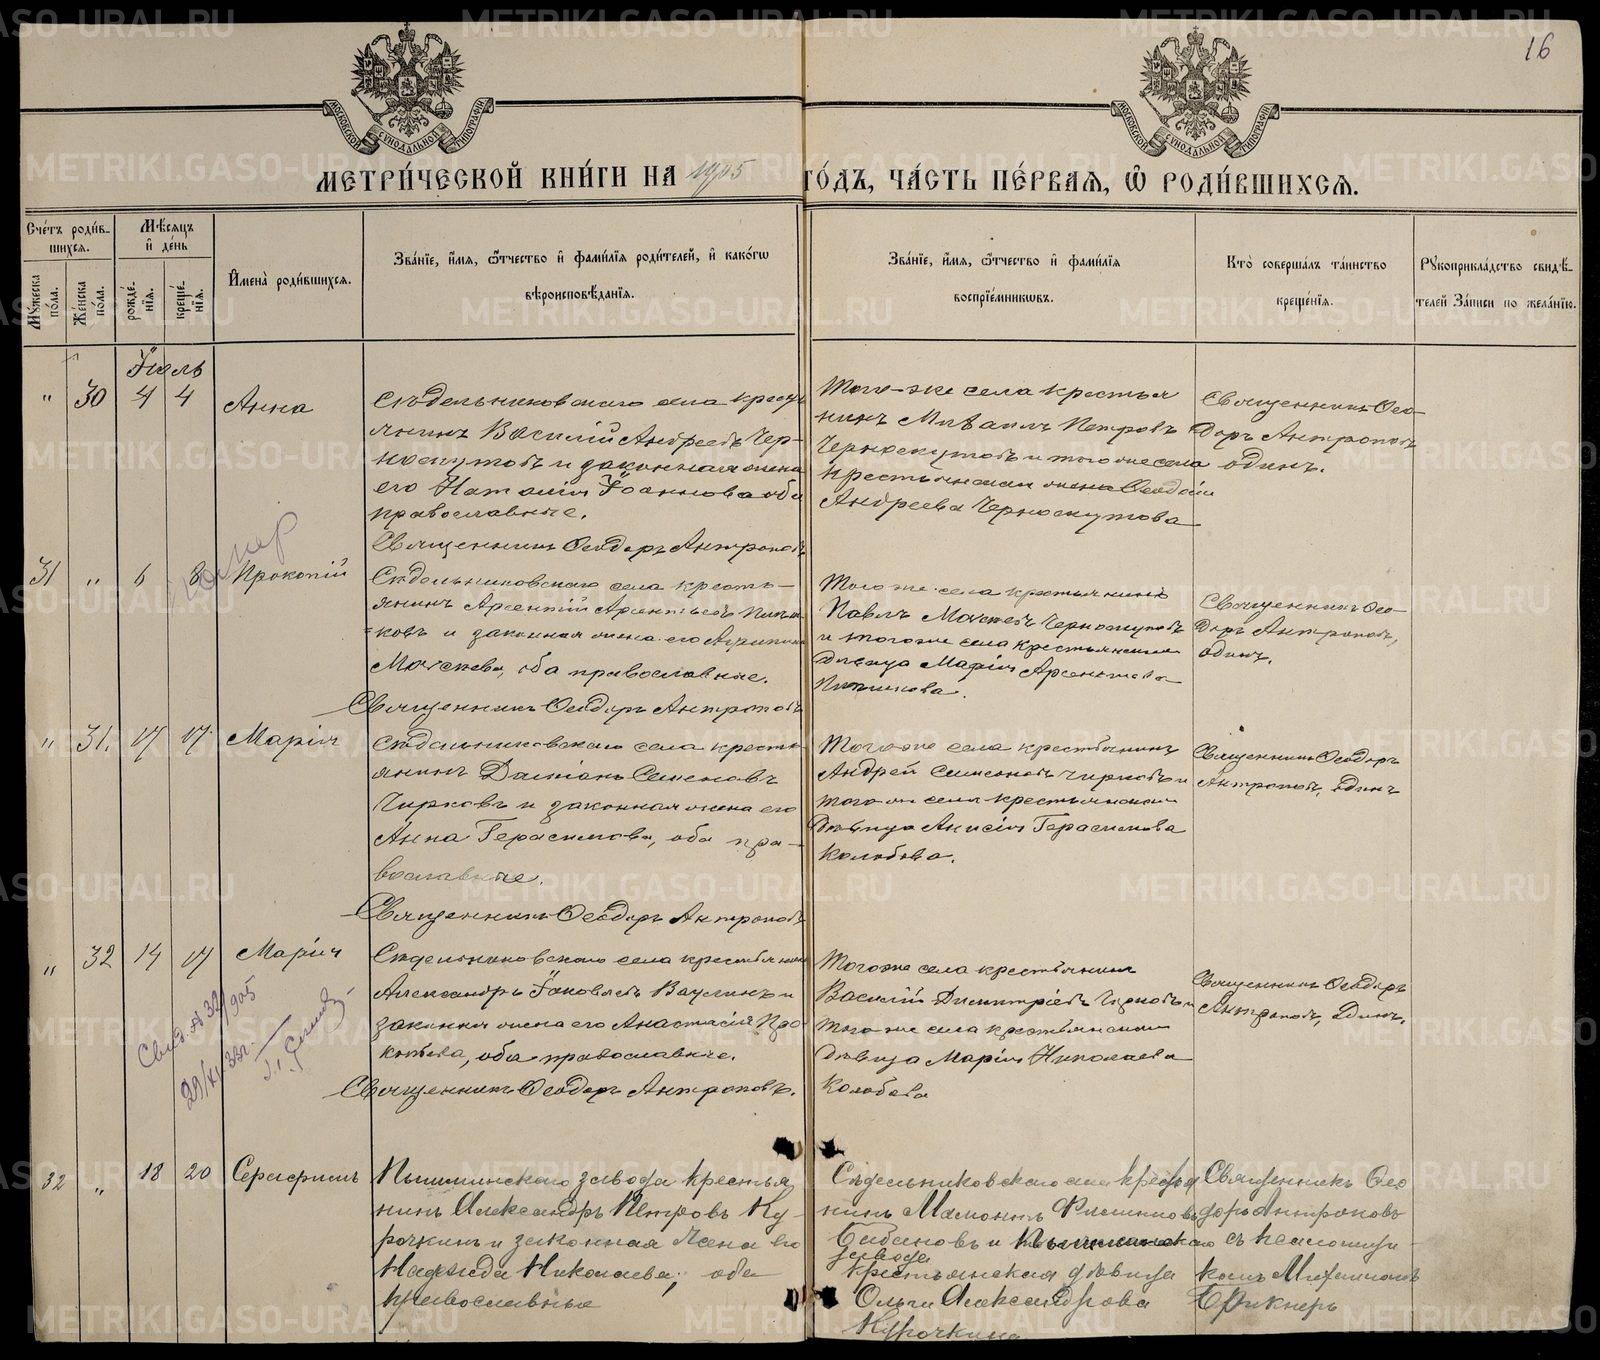 16
МОСКОВСКОЙ СѴНОДАЛЬНОЙ ТИПОГРАФІИ
МОСКОВСКОЙ СѴНОДАЛЬНОЙ ТИПОГРАФІИ
МЕТРИ́ЧЕСКОЙ КНИ́ГИ НА 1905 ГО́ДЪ, ЧА́СТЬ ПЕ́РВАЯ, Ѡ РОДИ́ВШИХСЯ.
Сче́тъ роди́в-
шихся.
Мꙋ́жеска по́ла.
Же́нска по́ла.
Мѣ́сяцъ
и҆ де́нь
рожде́-
нїя.
креще́-
нїя.
И҆мена̀ роди́вшихся.
Зва́нїе, и҆́мя, ѻ҆́тчество и҆ фами́лїя роди́телей, и҆ како́гѡ
вѣроисповѣ́данїя.
Зва́нїе, и҆́мя, ѻ҆́тчество и҆ фами́лїя
воспрїе́мникѡвъ.
Кто̀ соверша́лъ та́инство
креще́нїя.
Рꙋкоприкла́дство свидѣ́-
телей За́писи по жела́нїю.
Іюль
" 30 4 4 Анна
Сѣдельниковскаго села кресть
янинъ Василій Андреевъ Чер-
носкутовъ и законная жена
его Наталія Іоаннова оба
православные.
Священникъ Ѳеодоръ Антроповъ
Того-же села крестья
нинъ Михаилъ Петровъ
Черноскутовъ и того же села
крестьянская жена
Андреева Черноскутова
Священникъ Ѳео-
доръ Антроповъ
одинъ.
31 " 6 8 Прокопій
умер
Сѣдельниковскаго села кресть-
янинъ Арсентій Арсентьевъ
ковъ и законная жена его
Моисеева, оба православные.
Священникъ Ѳеодоръ Антроповъ
Того же села крестьянинъ
Павлъ Моисеевъ Черноскутовъ
и того же села крестьянская
дѣвица Марія Арсентьева
Священникъ Ѳео-
доръ Антроповъ,
одинъ.
" 31. 17 17 Марія
Сѣдельниковскаго села кресть
янинъ Даміанъ Семеновъ
Чирковъ и законная жена его
Анна Герасимова, оба пра-
вославные.
Священникъ Ѳеодоръ Антроповъ
Того же села крестьянинъ
Андрей Семеновъ Чирковъ и
того же села крестьянская
дѣвица Анисія Герасимова
Колобова.
Священникъ Ѳеодоръ
Антроповъ, одинъ
" 32 14 17 Марія
Свид. № 32/905
29/XI 38г.
Сѣдельниковскаго села крестьянинъ
Александръ Іаковлевъ Ваулинъ и
законная жена его Анастасія Про
копьева, оба православные.
Священникъ Ѳеодоръ Антроповъ.
Того же села крестьянинъ
Василій Димитріевъ Чирковъ и
того же села крестьянская
дѣвица Марія Николаева
Колобова
Священникъ Ѳеодоръ
Антроповъ, одинъ.
32 " 18 20 Серафимъ
Пышминскаго завода крестья
нинъ Александръ Петровъ Ку-
рочкинъ и законная жена его
Надежда Николаева, оба
православные
Сѣдельниковскаго села крестья
нинъ Мамонтъ Филипповъ
Бабановъ и Пышминскаго
завода
крестьянская дѣвица
Ольга Александрова
Курочкина
Священникъ Ѳео
доръ Антроповъ
съ псаломщи-
комъ Михаиломъ
Брикнеръ